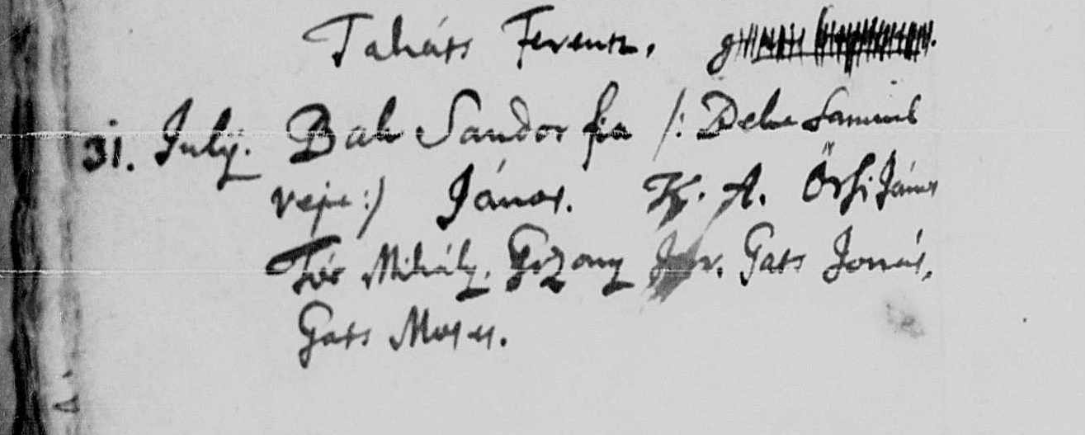 Takáts Ferencz.
31. Julÿ. Bak Sandor fia /: Deke Samuel
veje :/ János. K. A. Örsi János
Tór Mihály. Gozony Gats Jonás,
Gats Moses.